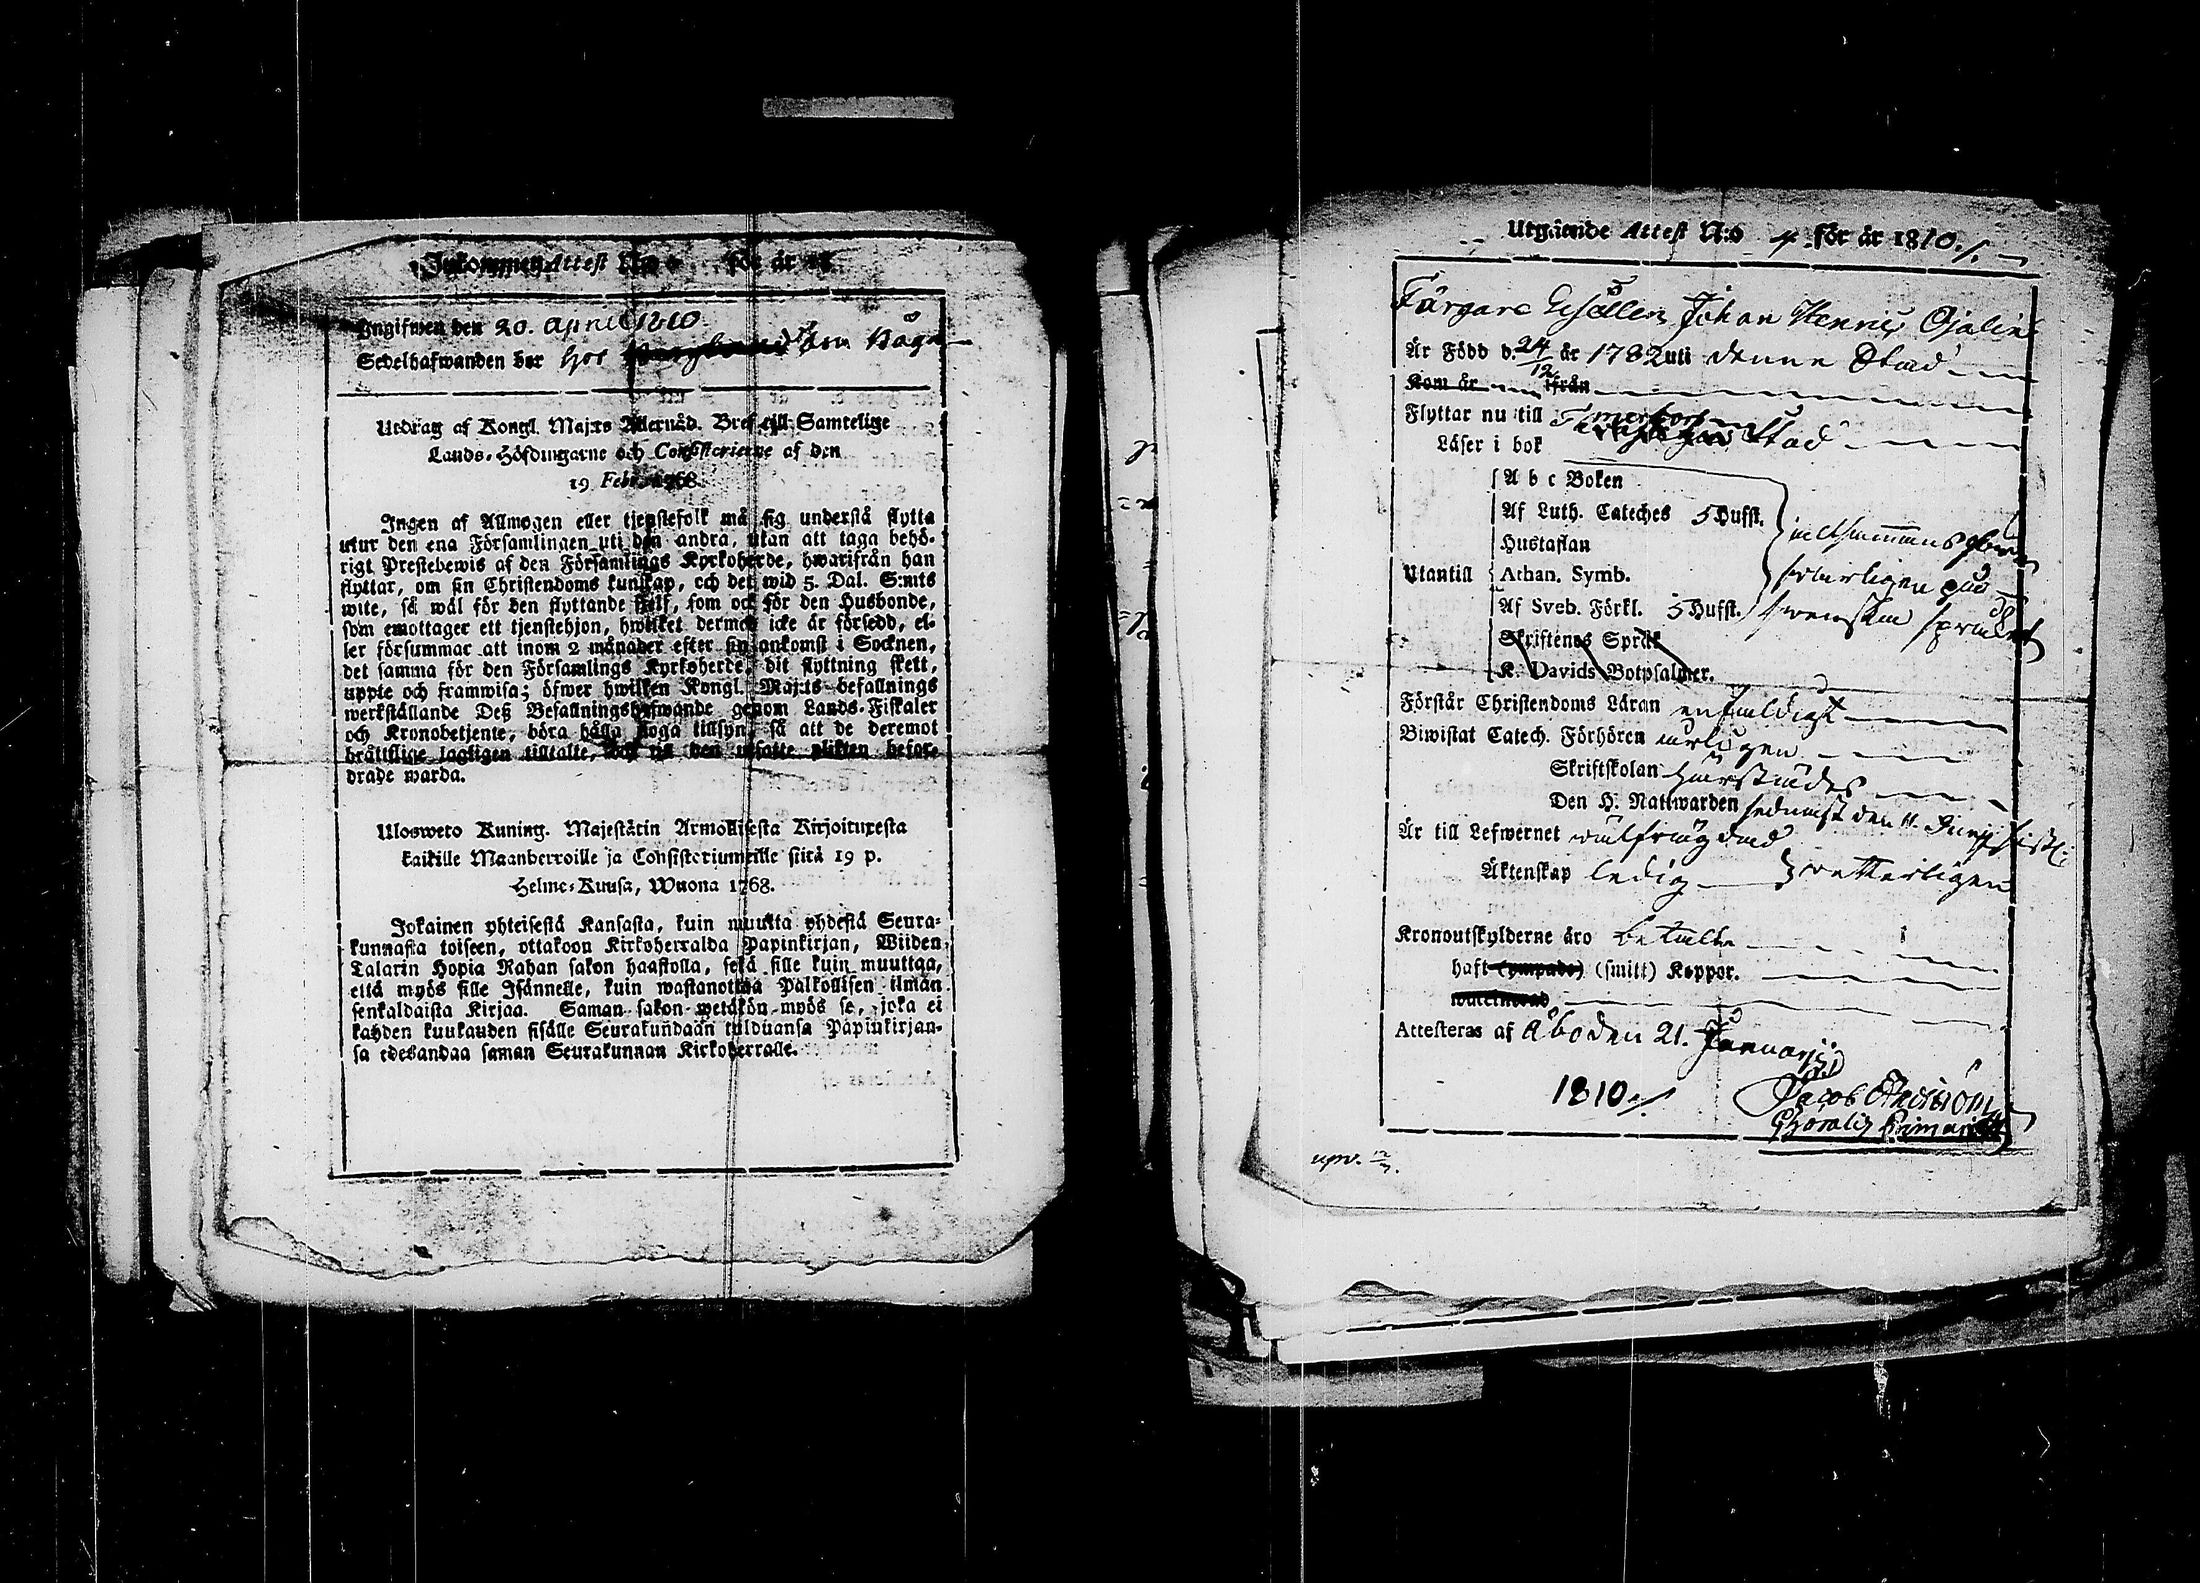 Inkommen Attest N:o för år 18
Ingifwen den 20. April 1810
Sedelhafwanden bor hos
Utdrag af Kongl. Maj:ts Allernåd. Bref till Samtelige
Lands-Höfdingarne och Consistorierne af den
19 Febr. 1768.
Ingen af Allmogen eller tjenstefolk må sig understå flytta
utur den ena Församlingen uti den andra, utan att taga behö-
rigt Prestebewis af den Församlings Kyrkoherde, hwarifrån han
flyttar, om sin Christendoms kunskap, och det wid 5. Dal. S:mts
wite, så wäl för den flyttande sjelf, som ock för den Husbonde,
som emottager ett tjenstehjon, hwilket dermed icke är försedd, el-
ler försummar att inom 2 månader efter sin ankomst i Socknen,
det samma för den Församlings Kyrkoherde, dit flyttning skett,
uppte och framwisa; öfwer hwilken Kongl. Maj:ts befallnings
werkställande Deß Befallningshafwande genom Lands-Fiskaler
och Kronobetjente, böra hålla noga tillsyn, så att de deremot
bråttslige lagligen tilltalte, och til den utsatte plikten befor-
drade warda.
Ulosweto Kuning. Majestätin Armollisesta Kirjoituxesta
kaikille Maanherroille ja Consistoriumeille siitä 19 p.
Helme-Kuusa, Wuona 1768.
Jokainen yhteisestä Kansasta, kuin muutta yhdestä Seura-
kunnasta toiseen, ottakoon Kirkoherralda Papinkirjan, Wiiden
Talarin Hopia Rahan sakon haastolla, sekä sille kuin muuttaa,
että myös sille Isännelle, kuin wastanottaa Palkollisen ilman
senkaldaista Kirjaa. Saman sakon wetäkön myös se, joka ei
kahden kuukauden sisälle Seurakundaan tulduansa Papinkirjan-
sa edesandaa saman Seurakunnan Kirkoherralle.
Utgående Attest N:o 4 för år 1810.
Färgare Gesällen Johan Henric Ojalin
Är Född d. 24/12 år 1782 uti denne Stad
Kom år ifrån
Flyttar nu till Stad
Läser i bok
A b c Boken
Af Luth. Cateches 5 Hufst.
Hustaflan
Utantill Athan. Symb.
Af Sveb. Förkl. 5 Hufst. swenska språket
Skriftenes Språk
K. Davids Botpsalmer.
Förstår Christendoms Läran enfaldigt
Biwistat Catech. Förhören årligen
Skriftskolan härstädes
Den H. Nattwarden sednast den
Är till Lefwernet wälfrägdad
Äktenskap ledig
Kronoutskylderne äro betalte
haft (ympade) (smitt) Koppor.
waccinerad
Attesteras af Åbo den 21. Januarii
1810.
Jacob